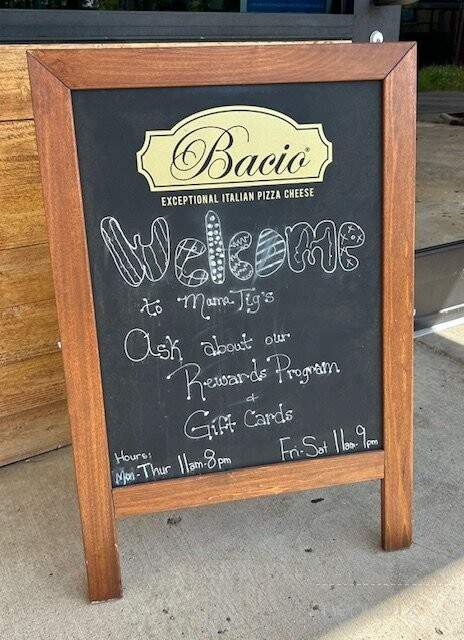 Bacio®
EXCEPTIONAL ITALIAN PIZZA CHEESE
Welcome
to Mama Tig's
Ask about our
Rewards Program
+
Gift Cards
Hours:
Mon-Thur 11am-8pm
Fri-Sat 11am-9pm